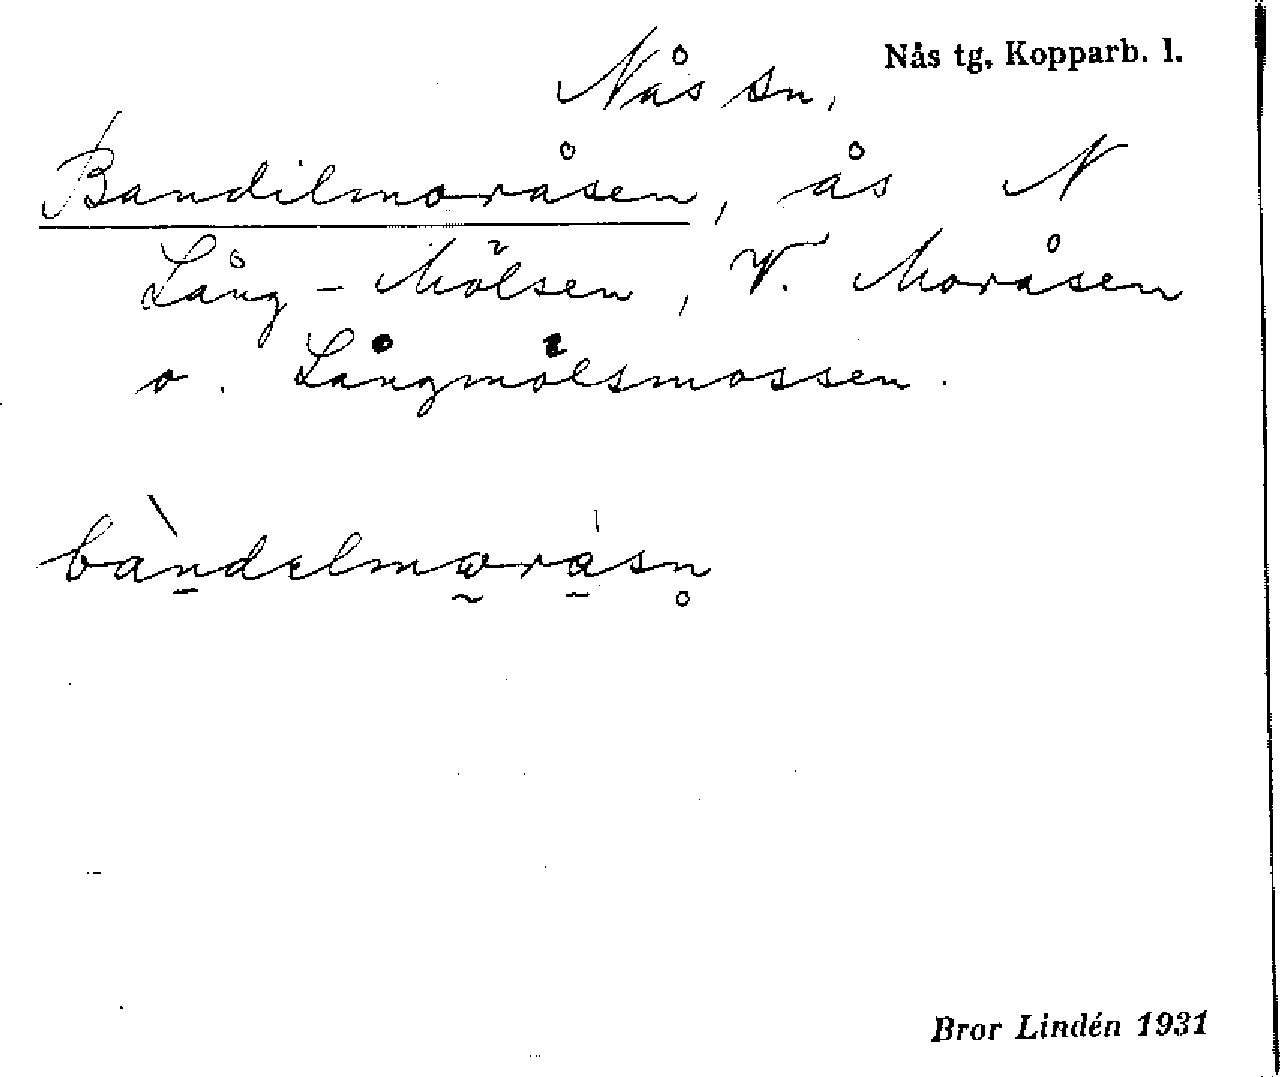 Nås tg, Kopparb. l.
Nås sn,
Bandilmoråsen, ås N
Lång-Mölsen, V. Moråsen
o. Långmölsmossen.
bàndelmoråsn̥
Bror Lindén 1931